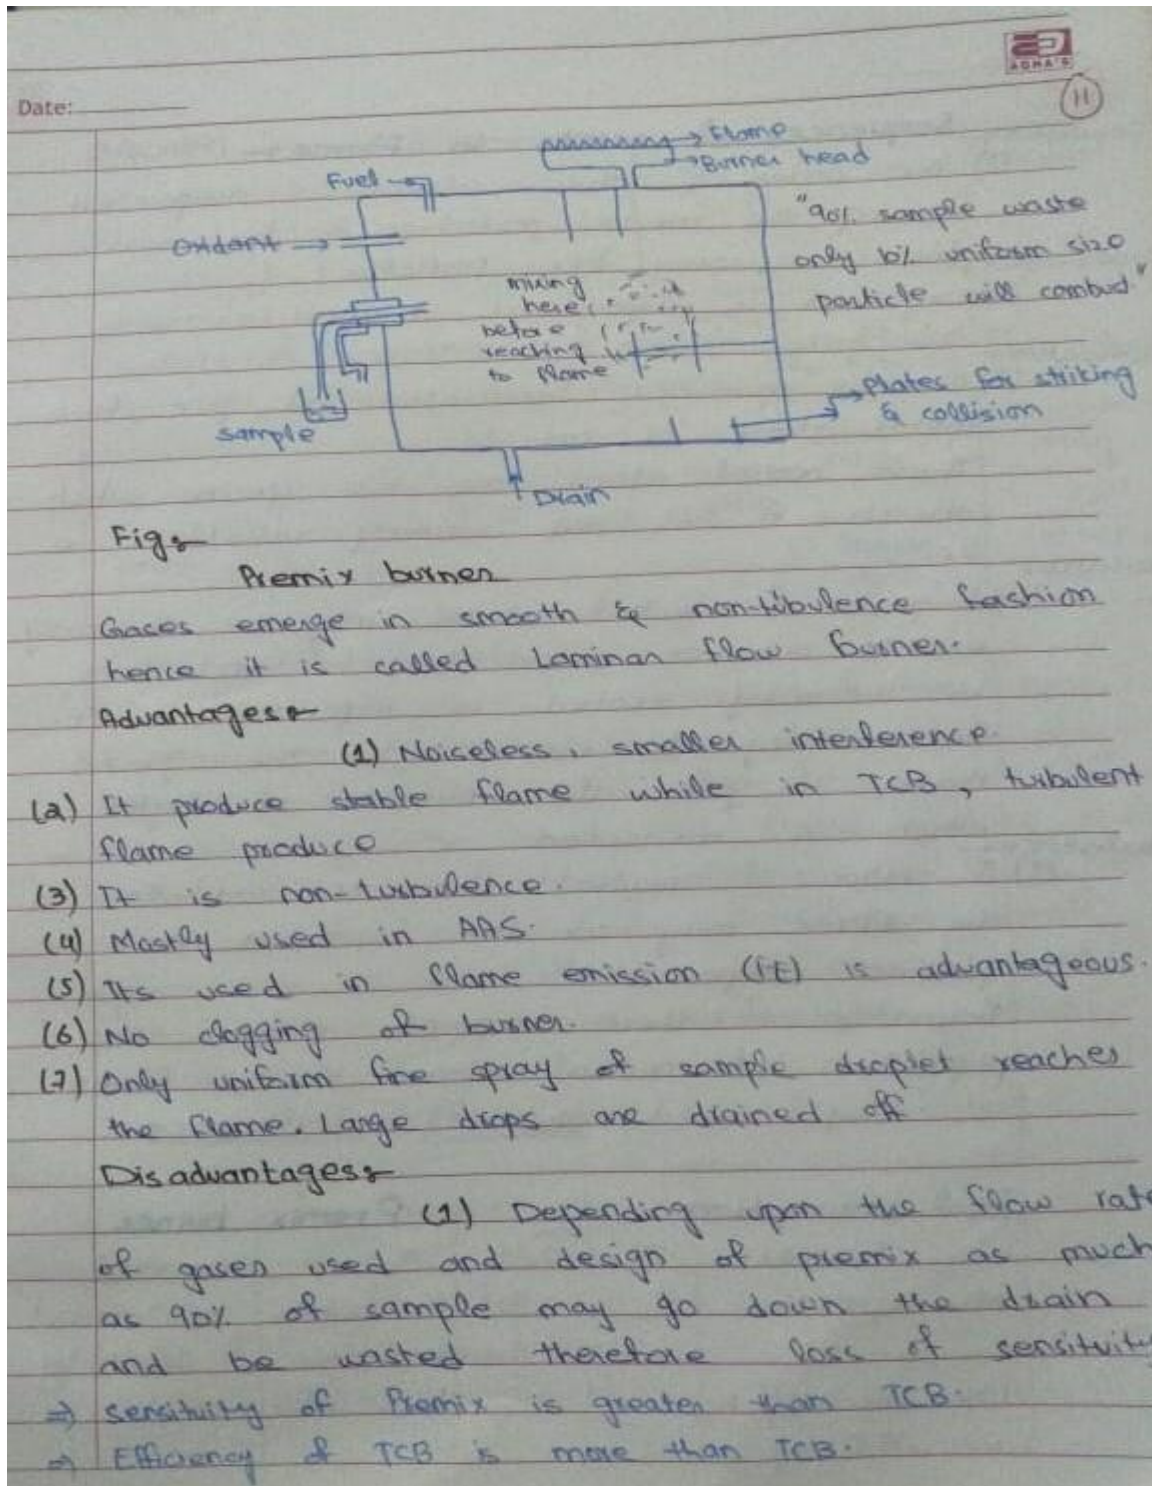 ADHA'S
Date:
11
Flame
Burner head
Fuel
Oxidant
"90% sample waste
only 10% uniform size
particle will combud."
mixing
here
before
reaching
to flame
Plates for striking
& collision
sample
Drain
Fig:-
Premix burner
Gases emerge in smooth & non-tubulence fashion
hence it is called Laminar flow burner.
Advantages:-
(1) Noiseless, smaller interference.
(2) It produce stable flame while in TCB, turbulent
flame produce
(3) It is non-turbulence.
(4) Mostly used in AAS.
(5) Its used in flame emission (FE) is advantageous.
(6) No clogging of burner.
(7) Only uniform fine spray of sample droplet reaches
the flame. Large drops are drained off
Disadvantages:-
(1) Depending upon the flow rate
of gases used and design of premix as much
as 90% of sample may go down the drain
and be wasted therefore loss of sensitivity
⇒ sensitivity of Premix is greater than TCB.
⇒ Efficiency of TCB is more than TCB.